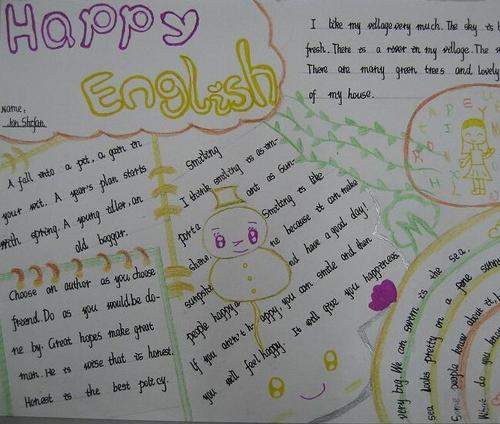 Happy
English
Name:
I like my village very much. The sky is b
fresh. There is a rover in my village. The
There are many green trees and lovely
of my house.
A fall into a pit, a gain in
your wit. A year's plan starts
with spring. A young idler, an
old beggar.
Choose an author as you choose
friend. Do as you would be do-
ne by. Great hopes make great
man. He is wise that is honest.
Honest is the best policy.
Smiling
I think smiling is as im-
porta ant as sun-
shine Smiling is like
sunshi ne because it can make
people happy a nd have a good day!
If you aren't h appy, you can smile and then
you will feel happy. It will give you happiness
very big. We can swim in the sea.
sea looks pretty on a fine
Some people know about
What do you know